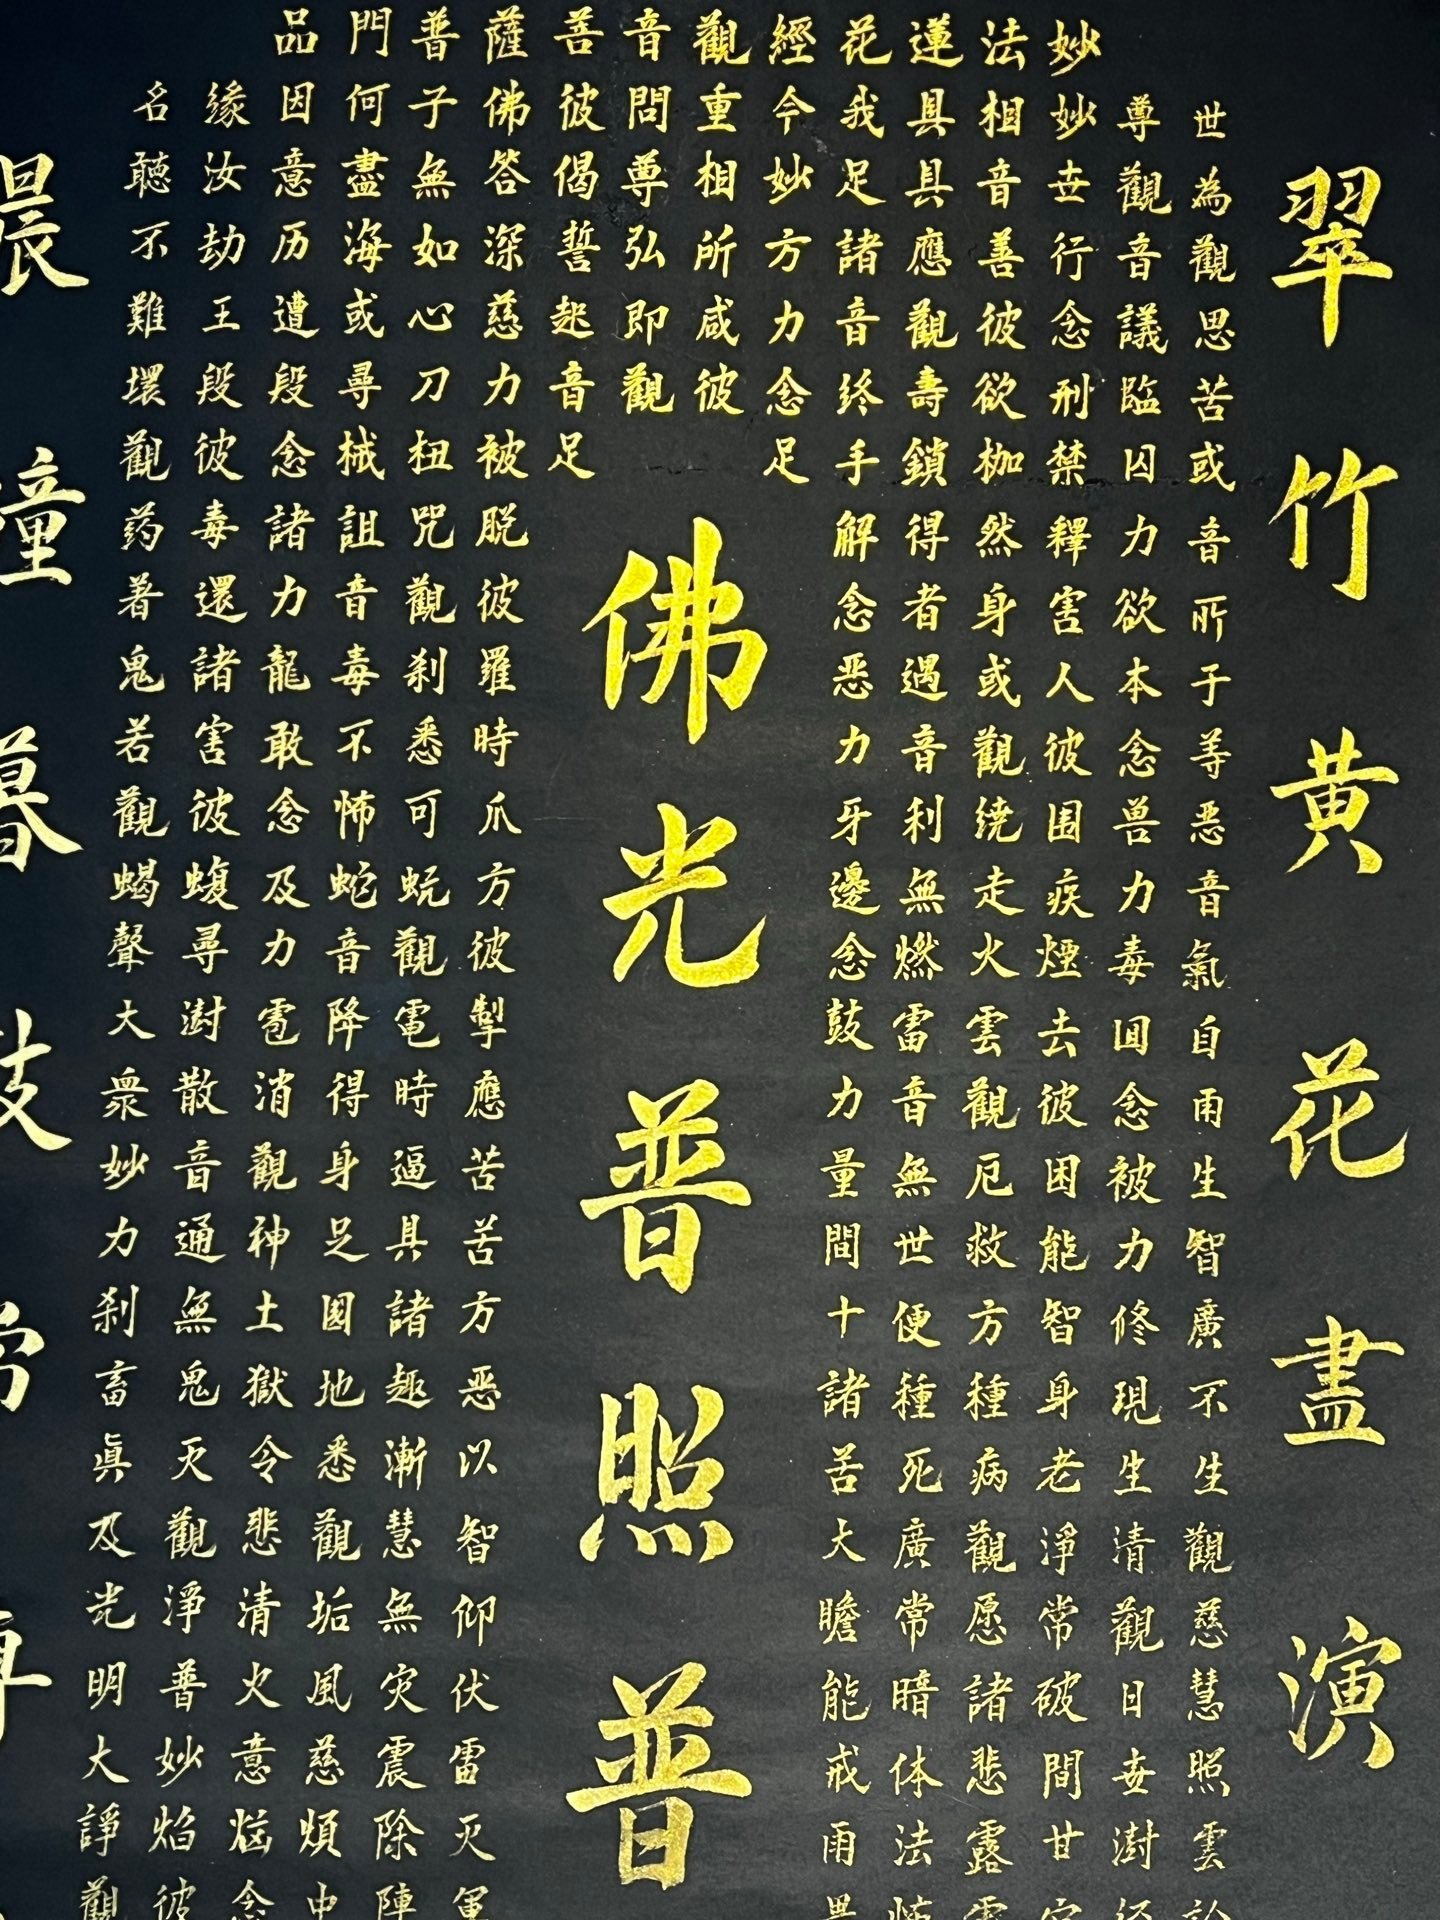 翠竹黄花盡演
妙法蓮花經觀音菩薩普門品
世尊妙相具我今重問彼佛子何因緣名
為觀世音具足妙相尊偈答無盡意汝聽
觀音行善應諸方所弘誓深如海历劫不
思議念彼觀音力咸即起慈心或遭王難
苦臨刑欲壽終念彼觀音力刀尋段段壞
或囚禁枷鎖手足足被杻械念彼觀
音力釋然得解脫咒詛諸毒药
所欲害身者念彼觀音力還著
于本人或遇恶羅刹毒龍諸鬼
等念彼觀音力時悉不敢害若
恶兽围绕利牙爪可怖念彼觀
音力疾走無邊方蚖蛇及蝮蝎
氣毒煙火燃念彼觀音力尋聲
自回去雲雷鼓掣電降雹澍大
雨念彼觀音力應時得消散衆
生被困厄無量苦逼身觀音妙
智力能救世間苦具足神通力
廣修智方便十方諸國土無刹
不現身種種諸恶趣地獄鬼畜
生生老病死苦以漸悉令灭真
觀清淨觀廣大智慧觀悲觀及
慈觀常愿常瞻仰無垢清淨光
慧日破諸暗能伏灾風火普明
照世間悲体戒雷震慈意妙大
雲澍甘露法雨灭除煩惱焰諍
軍陣中念彼觀
佛光普照普
晨鐘暮鼓